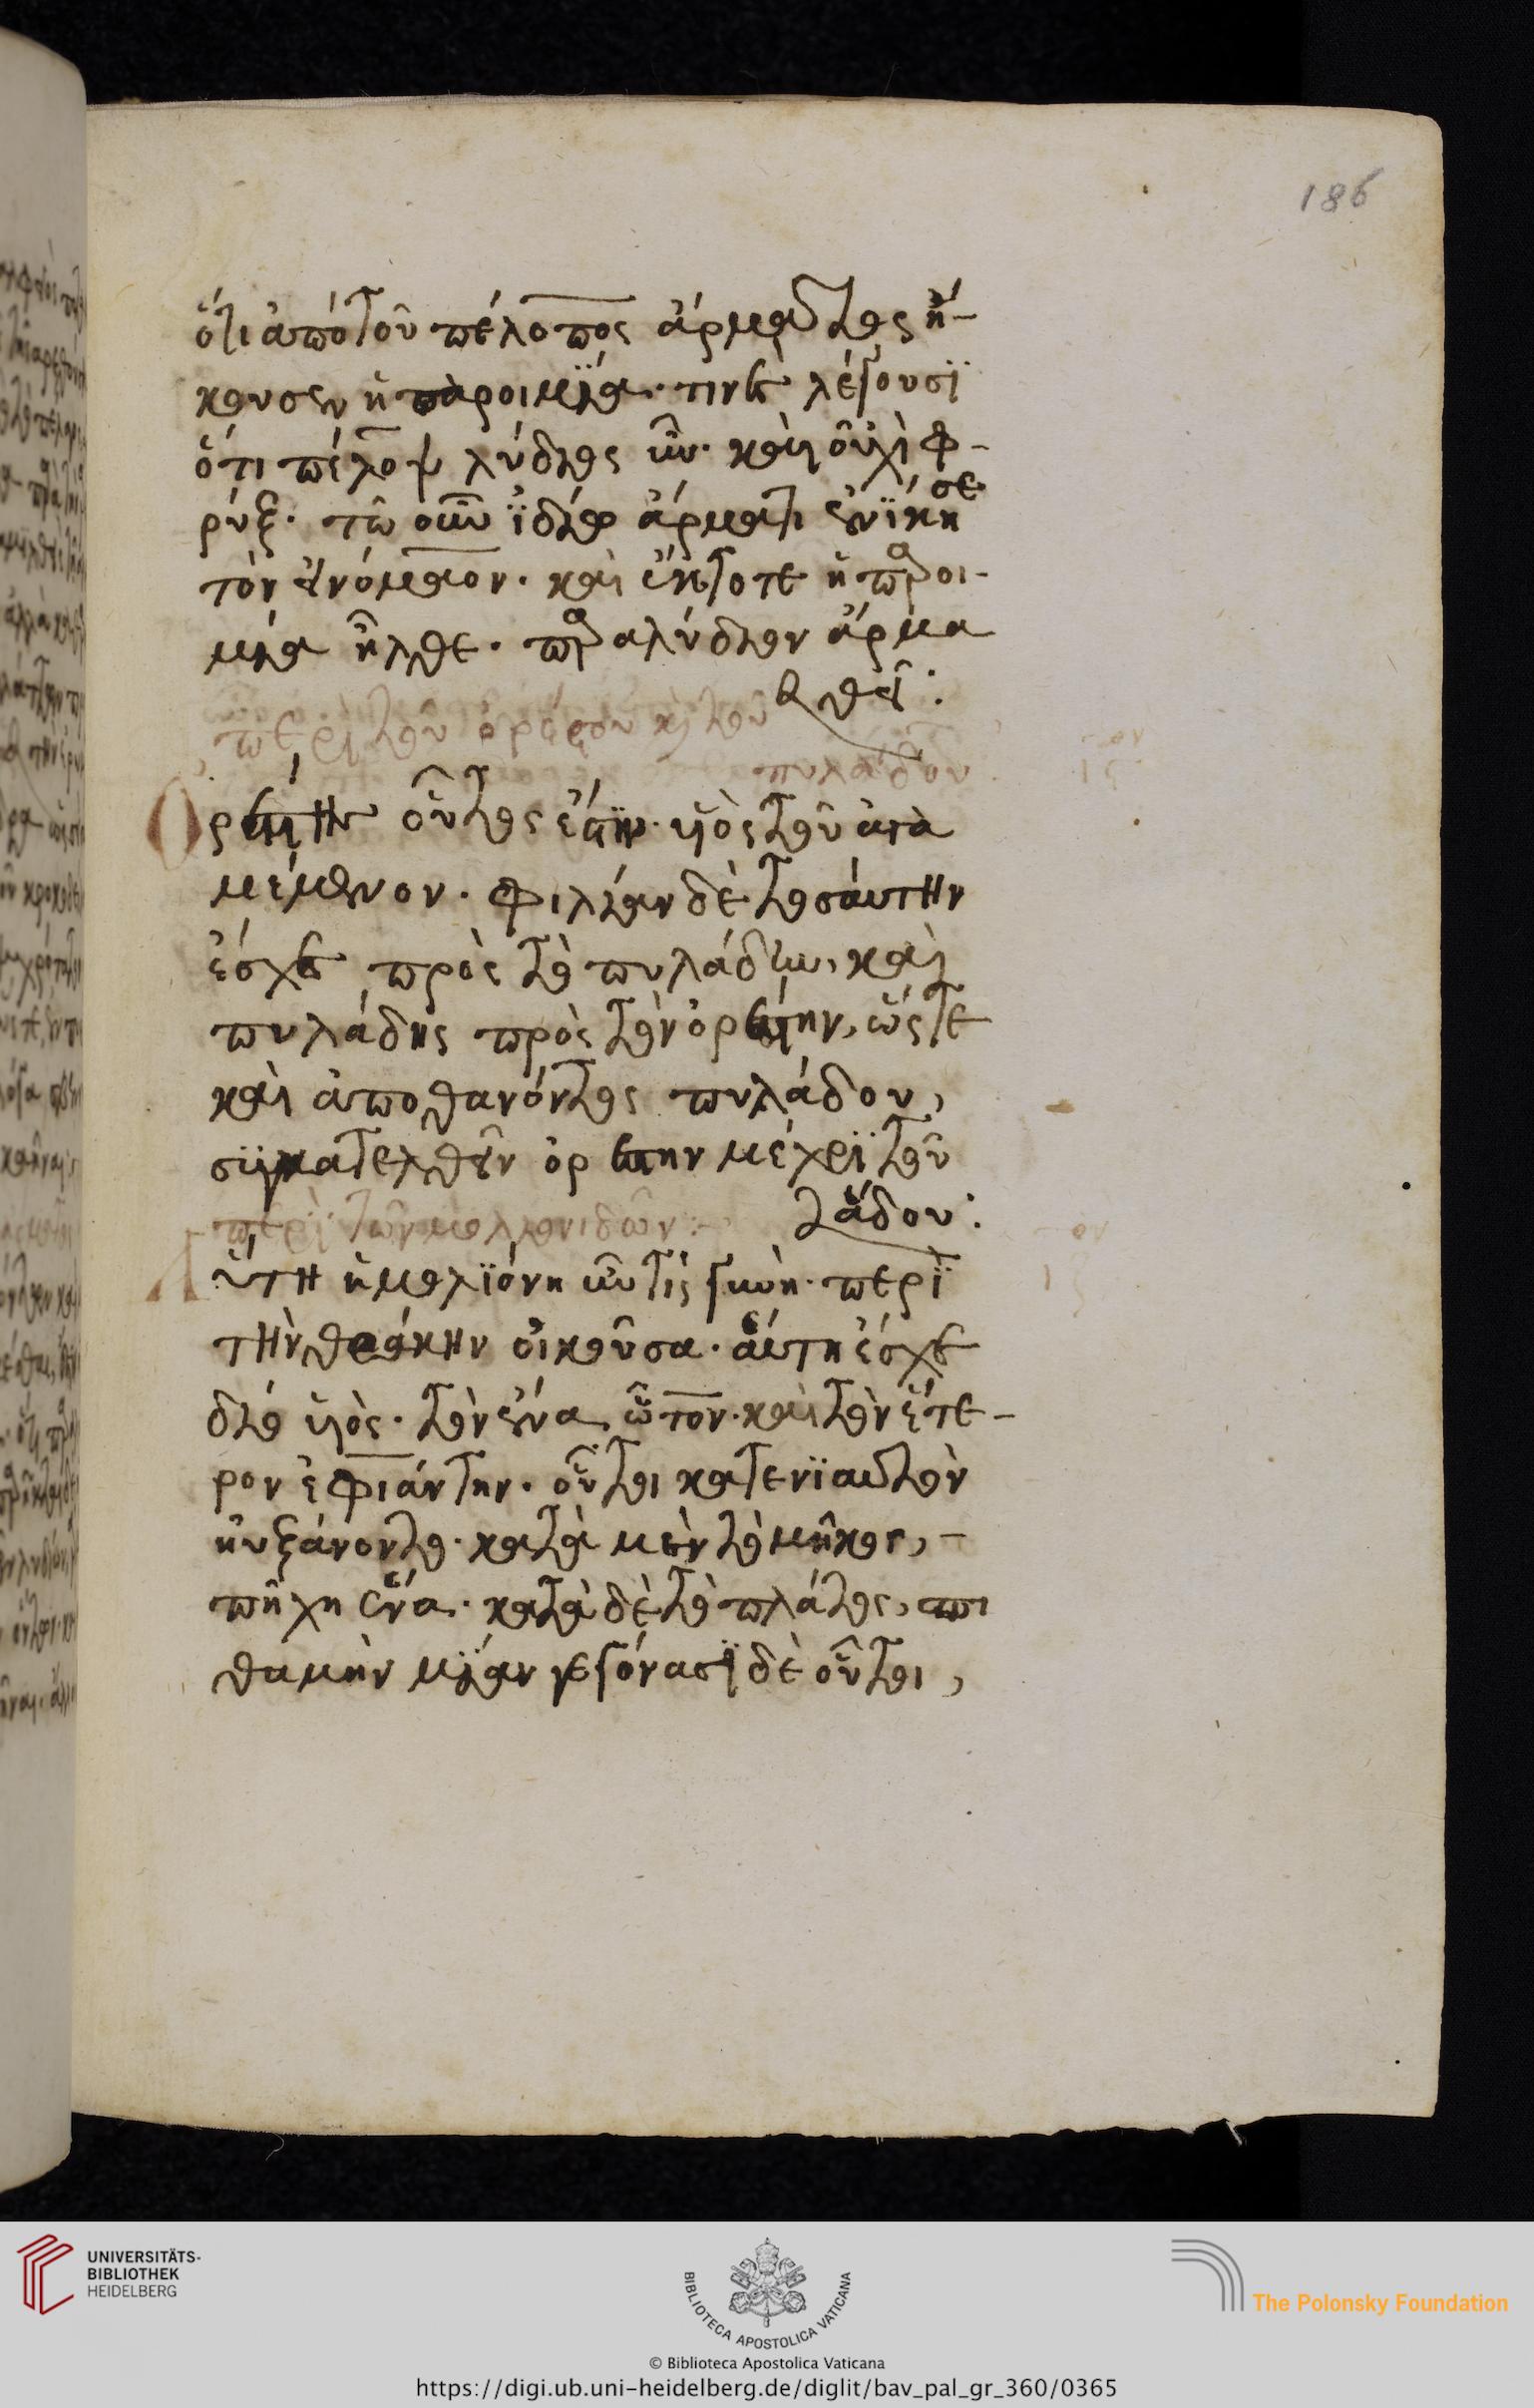 186
ὅτι ἀπὸ τοῦ πέλοπος ἅρματος ἤ-
κουσεν ἡ παροιμΐα· τινὲς λέγουσϊ
ὅτι πέλοψ λύδος ἦν· καὶ οὐχὶ φ-
ρύξ· τῶ οὖν ϊδίω ἅρματι ἐνΐκησε
τὸν οινόμαον· καὶ ἔκτοτε ἡ παροι-
μία ἦλθε· παρα λύδιον ἅρμα
θεῖ:
περὶ τοῦ ὀρέστου κ(αὶ) τοῦ
πυλάδου
Ορέστην οὗτος ἐστϊν· ὑιὸς τοῦ ἀγα
μέμνονος· φιλίαν δὲ τοσάυτην
ἔσχε πρὸς τὸ πυλάδην, καὶ
πυλάδης πρὸς τὸν ὀρέστην, ὥστε
καὶ ἀποθανόντος πυλάδου,
σϋγκατελθεῖν ὀρέστην μέχρϊ τοῦ
ἅδου:
περὶ τῶν μολιονιδῶν:
Αὕτη ἡ μολϊόνη ἦν τὶς γυνὴ· περὶ
τὴν θράκην οἰκοῦσα· ἅυτη ἔσχε
δύο ὑιὸς· τὸν ἕνα ὦτον· καὶ τὸν ἕτε-
ρον ἐφιάντην· οὗτοι κατενϊαυτὸν
ἠυξάνοντο· κατὰ μὲν τὸ μῆκος, -
πῆχη ἕνα· κατὰ δὲ τὸ πλάτος, σπι
θαμὴν μΐαν γεγόνασϊ δὲ οὗτοι,
UNIVERSITÄTS-
BIBLIOTHEK
HEIDELBERG
BIBLIOTECA APOSTOLICA VATICANA
The Polonsky Foundation
© Biblioteca Apostolica Vaticana
https://digi.ub.uni-heidelberg.de/diglit/bav_pal_gr_360/0365